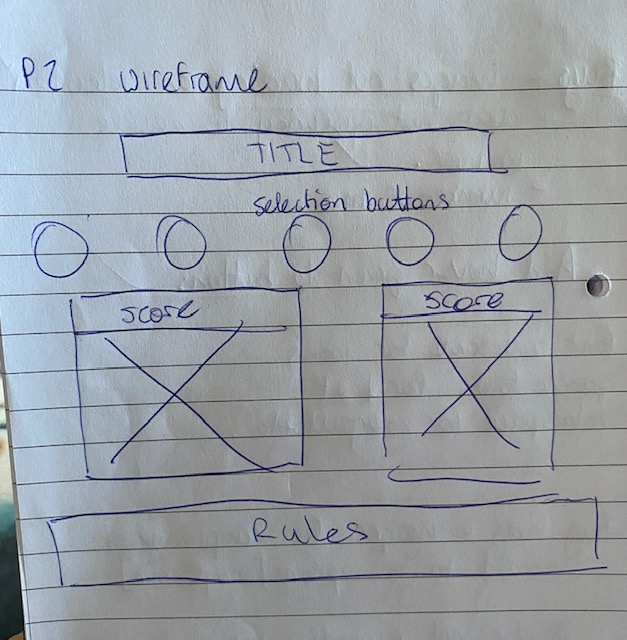 P2 wireframe
TITLE
selection buttons
score score
Rules